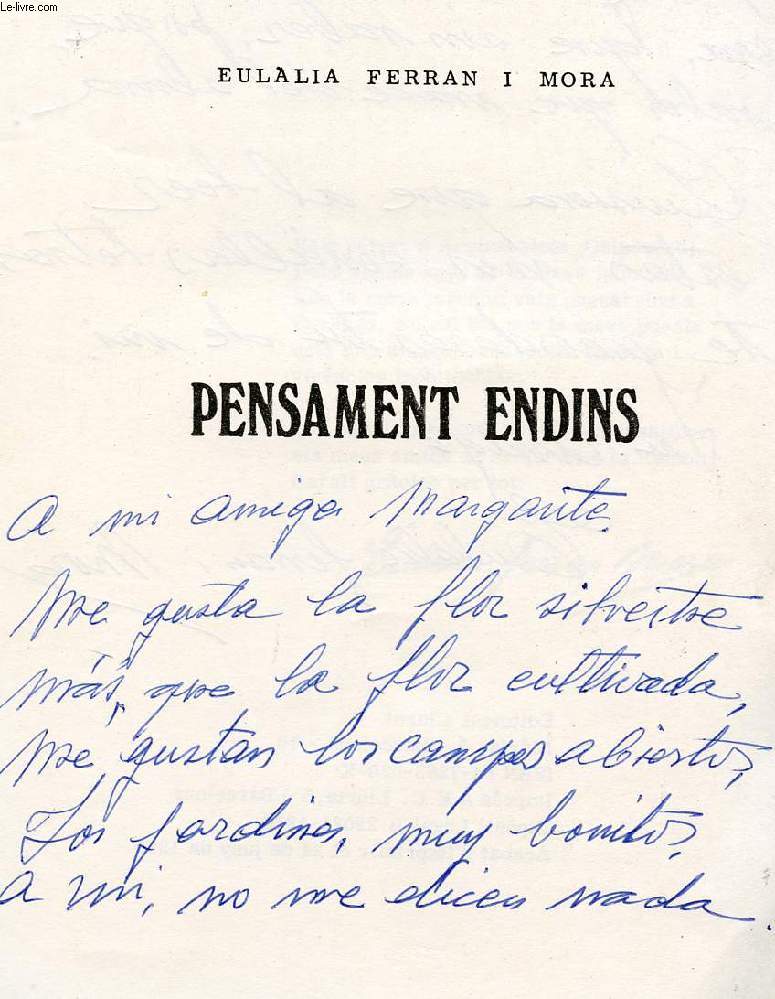 Le-livre.com
EULALIA FERRAN I MORA
PENSAMENT ENDINS
A mi amiga Margarita.
Me gusta la flor silvestre
más, que la flor cultivada,
me gustan los campos abiertos,
Los jardines, muy bonitos,
a mi, no me dicen nada.